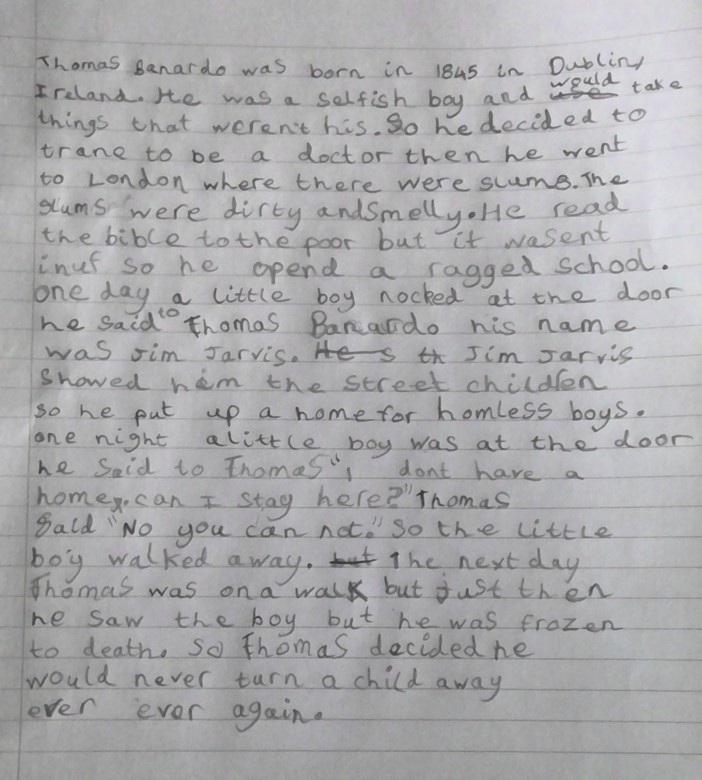 Thomas Banardo was born in 1845 in Dublin,
Ireland. He was a selfish boy and would take
things that weren't his. So he decided to
trane to be a doctor then he went
to London where there were slums. The
slums were dirty and smelly. He read
the bible to the poor but it wasent
inuf so he opend a ragged school.
one day a little boy nocked at the door
he said to Thomas Banardo his name
was Jim Jarvis. He s th Jim Jarvis
showed him the street children
so he put up a home for homless boys.
one night a little boy was at the door
he said to Thomas "I dont have a
home, can I stay here?" Thomas
said "No you can not." So the little
boy walked away. but The next day
Thomas was on a walk but just then
he saw the boy but he was frozen
to death. So Thomas decided he
would never turn a child away
ever ever again.